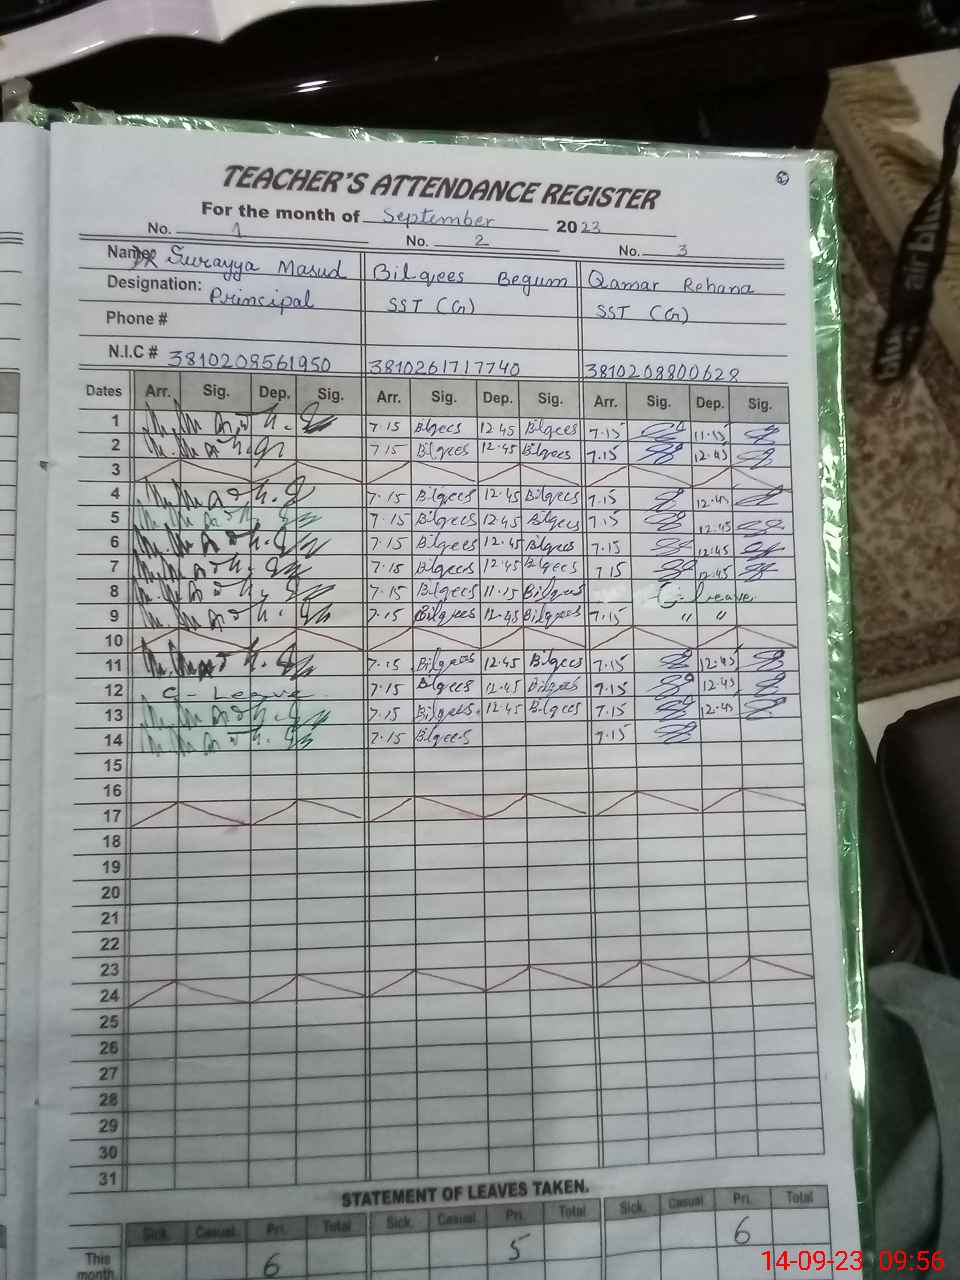 TEACHER'S ATTENDANCE REGISTER
For the month of September 2023
No. 1 No. 2 No. 3
Name: Dr Surayya Masud Bilqees Begum Qamar Rehana
Designation: Principal SST (G) SST (G)
Phone #
N.I.C # 3810208561950 3810261717740 3810208800628
Dates Arr. Sig. Dep. Sig. Arr. Sig. Dep. Sig. Arr. Sig. Dep. Sig.
1 7.15 Bilqees 12.45 Bilqees 7.15 11.15
2 7.15 Bilqees 12.45 Bilqees 7.15 12.45
3
4 7.15 Bilqees 12.45 Bilqees 7.15 12.45
5 7.15 Bilqees 12.45 Bilqees 7.15 12.45
6 7.15 Bilqees 12.45 Bilqees 7.15 12.45
7 7.15 Bilqees 12.45 Bilqees 7.15 12.45
8 7.15 Bilqees 11.15 Bilqees C-leave
9 7.15 Bilqees 12.45 Bilqees 7.15 " "
10
11 7.15 Bilqees 12.45 Bilqees 7.15 12.45
12 C - Leave 7.15 Bilqees 12.45 Bilqees 7.15 12.45
13 7.15 Bilqees 12.45 Bilqees 7.15 12.45
14 7.15 Bilqees 7.15
15
16
17
18
19
20
21
22
23
24
25
26
27
28
29
30
31
STATEMENT OF LEAVES TAKEN.
Sick. Casual Pri. Total Sick. Casual Pri. Total Sick. Casual Pri. Total
This month 6 5 6
14-09-23 09:56
air blu